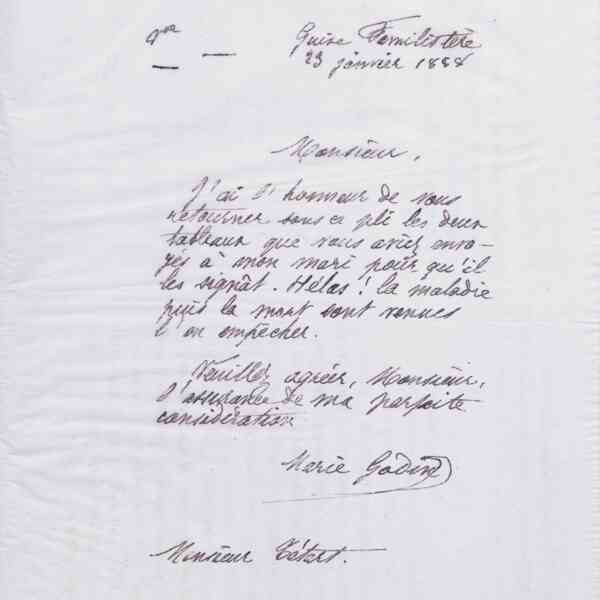 Guise Familistère
23 janvier 1888
Monsieur,
J'ai l'honneur de vous
retourner sous ce pli les deux
tableaux que vous aviez envo-
yés à mon mari pour qu'il
les signât. Hélas ! la maladie
puis la mort sont venues
l'en empêcher.
Veuillez agréer, Monsieur,
l'assurance de ma parfaite
considération
Marie Godin
Monsieur